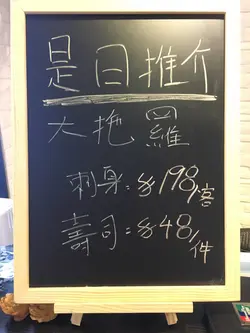 是日推介
大拖羅
刺身:$198/客
壽司:$48/件